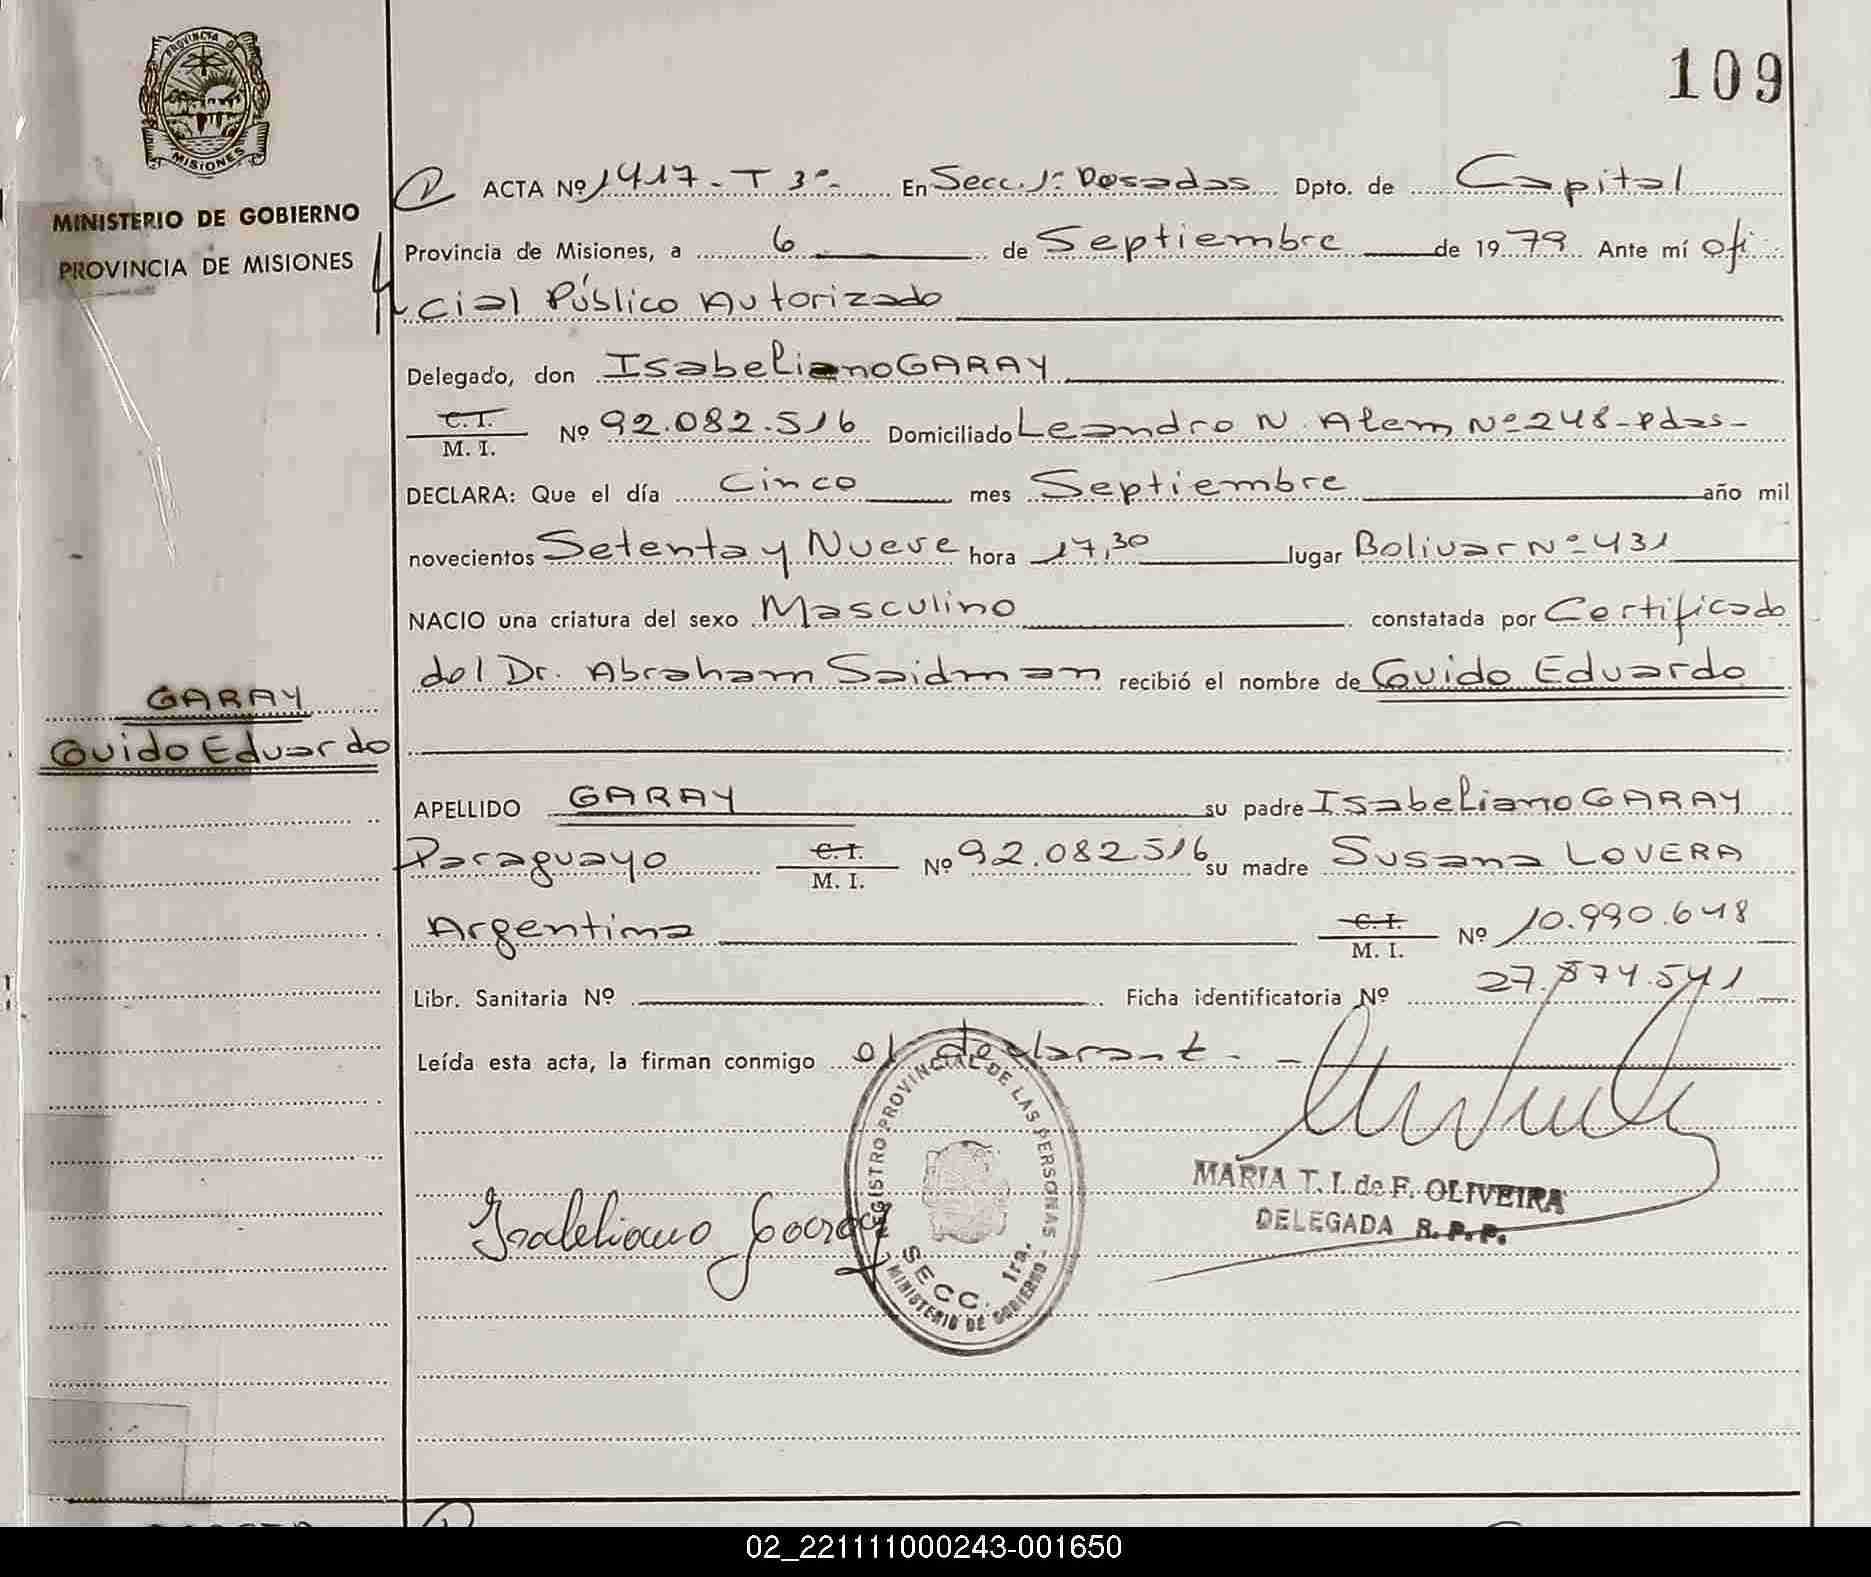 109
PROVINCIA DE
MISIONES
MINISTERIO DE GOBIERNO
PROVINCIA DE MISIONES
ACTA Nº 1417 - T 3º - En Secc. 1ª Posadas Dpto. de Capital
Provincia de Misiones, a 6 de Septiembre de 1979 Ante mí ofi
cial Público Autorizado
Delegado, don Isabeliano GARAY
C.I.
M. I. Nº 92.082.516 Domiciliado Leandro N. Alem Nº 248 - Pdas -
DECLARA: Que el día cinco mes Septiembre año mil
novecientos Setenta y Nueve hora 17,30 lugar Bolivar Nº 431
NACIO una criatura del sexo Masculino constatada por Certificado
del Dr. Abraham Saidman recibió el nombre de Guido Eduardo
GARAY
Guido Eduardo
APELLIDO GARAY su padre Isabeliano GARAY
Paraguayo C.I.
M. I. Nº 92.082516 su madre Susana LOVERA
Argentina C.I.
M. I. Nº 10.990.648
Libr. Sanitaria Nº Ficha identificatoria Nº 27.574.541
Leída esta acta, la firman conmigo el declarant-
REGISTRO PROVINCIAL DE LAS PERSONAS -
MINISTERIO DE GOBIERNO
SECC. 1ra.
Isabeliano Garay
MARIA T. I. de F. OLIVEIRA
DELEGADA R. P. P.
02_221111000243-001650